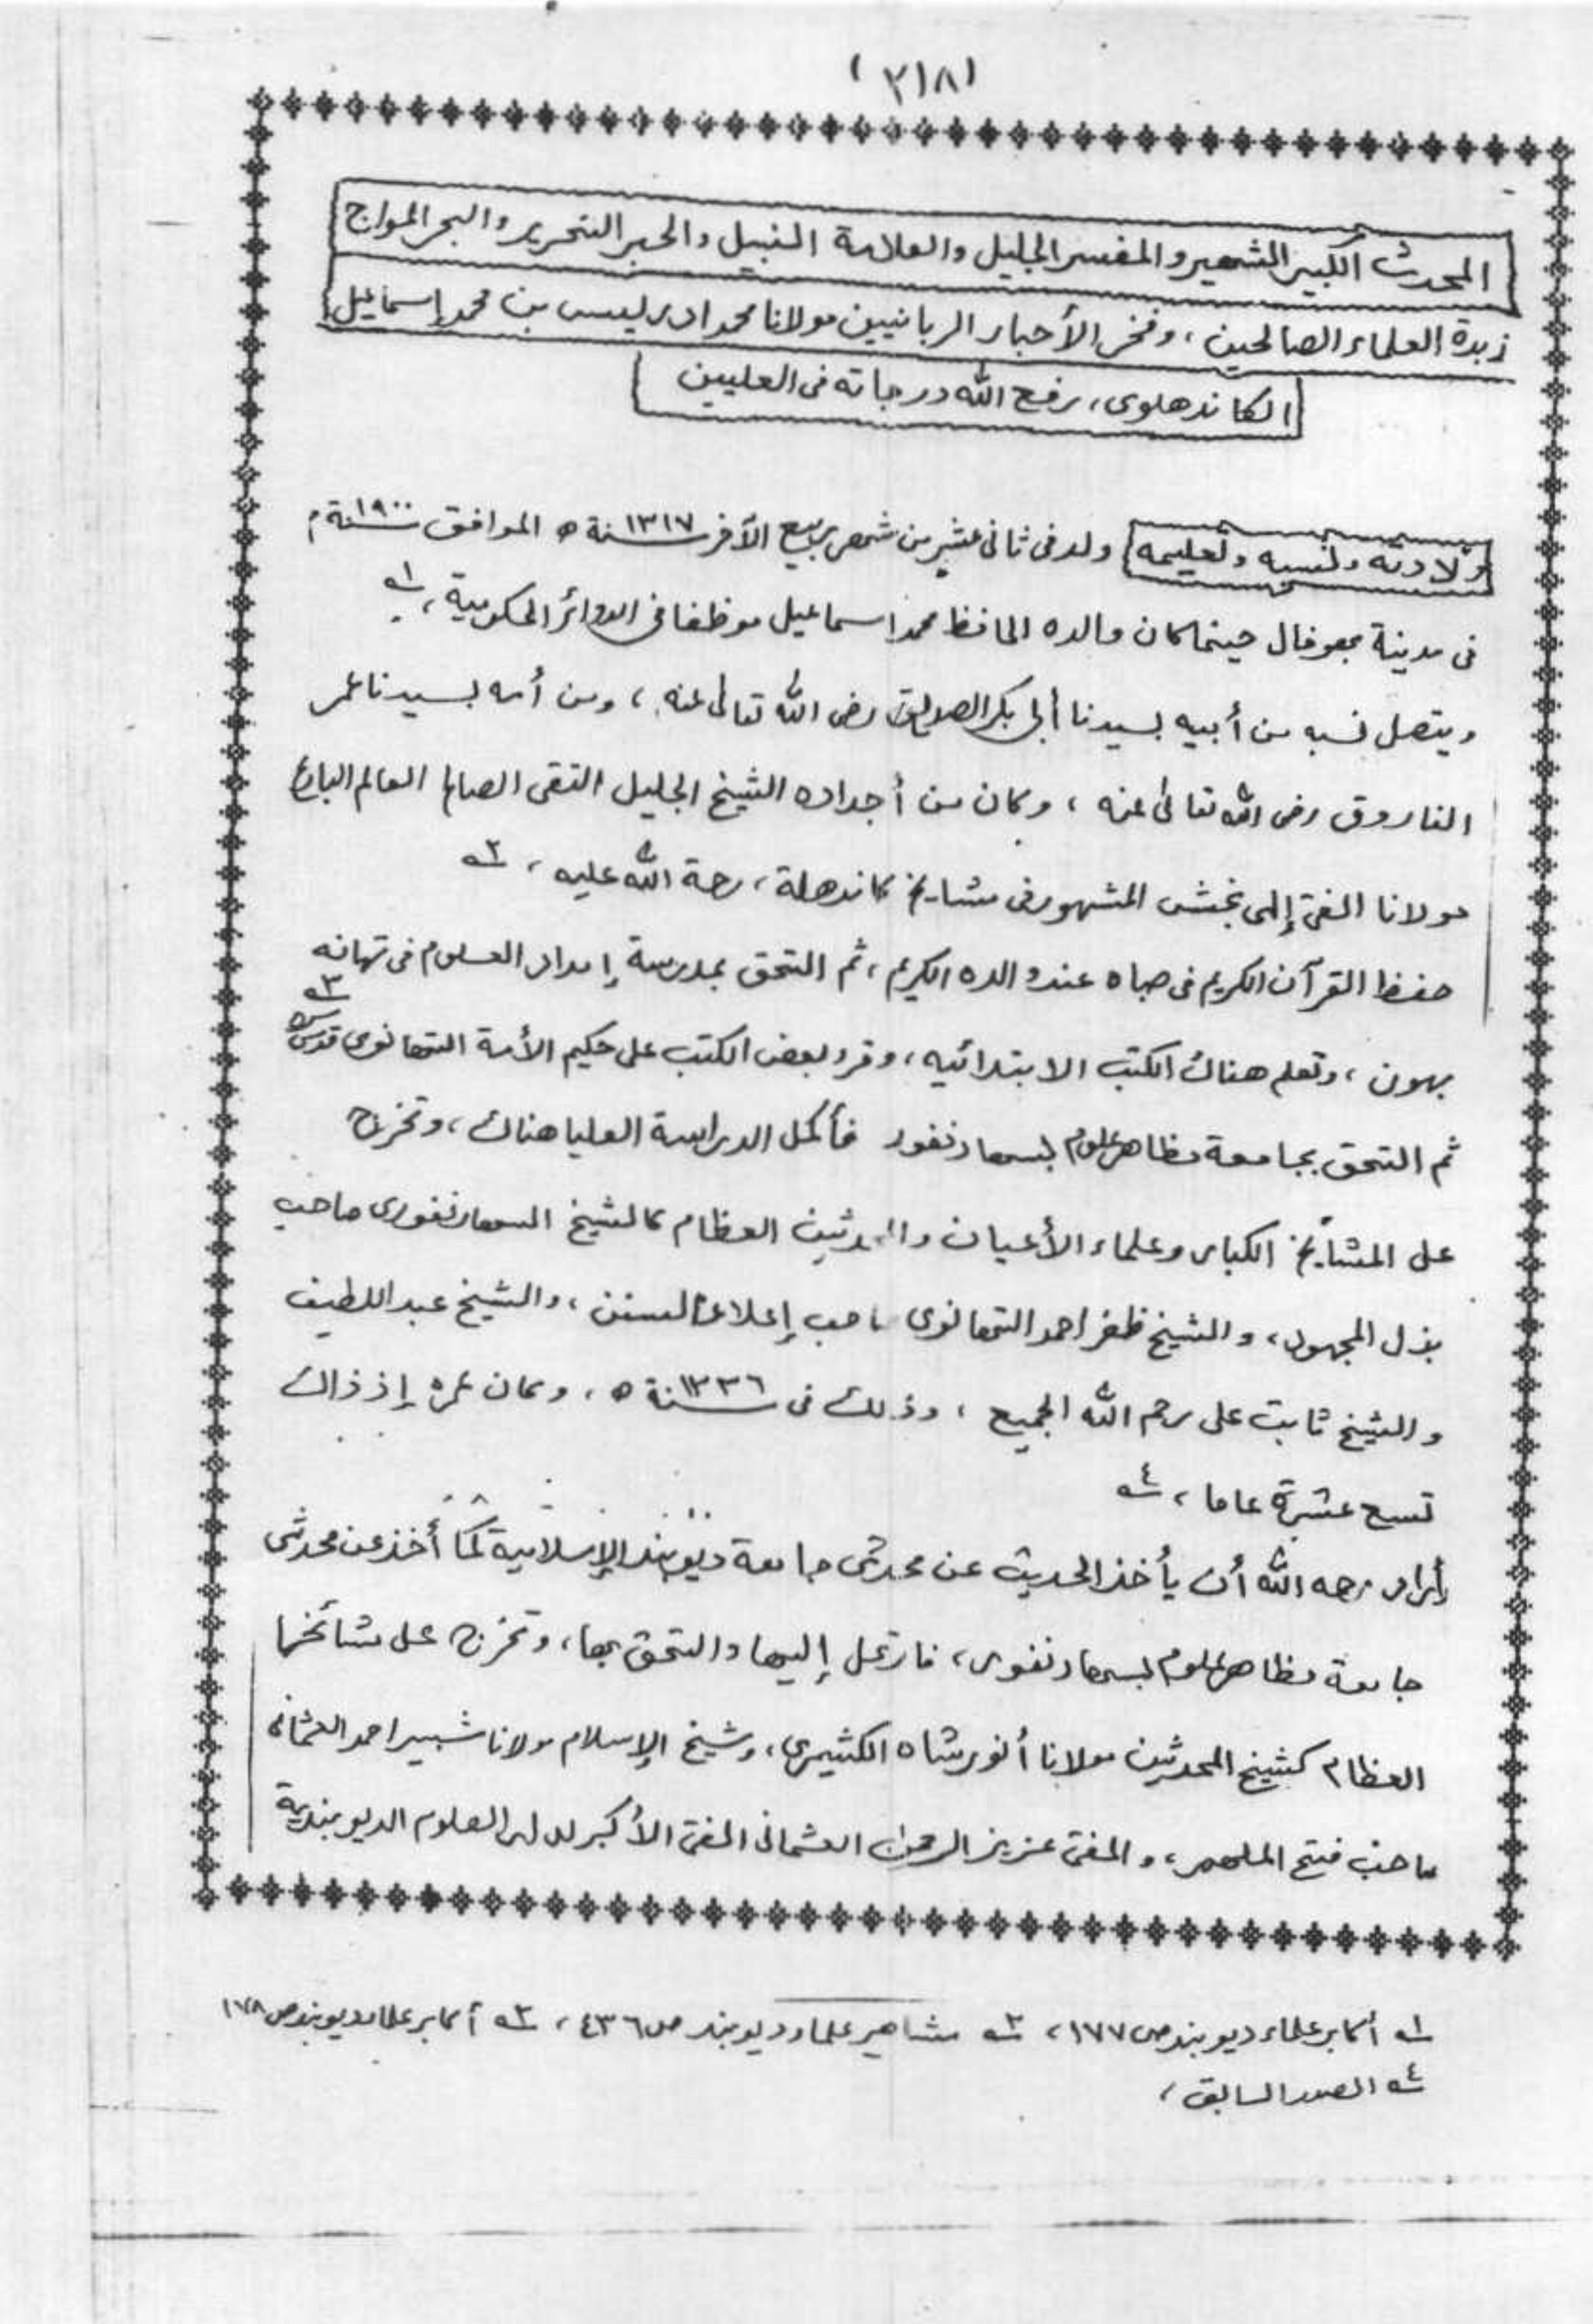 (٣١٨)
المحدث الكبير الشهير والمفسر الجليل والعلامة النبيل والحبر النحرير والبحر المواج
زبدة العلماء الصالحين، وفخر الأحبار الربانيين مولانا محمد ادريس بن محمد إسماعيل
الكاندهلوى، رفع الله درجاته فى العليين
ولادته ونسبه وتعليمه ولد فى ثانى عشر من شهر ربيع الآخر سنة ١٣١٧ ه الموافق سنة ١٩٠٠ م
فى مدينة بهوفال حينما كان والده الحافظ محمد اسماعيل موظفا فى الدوائر الحكومية، ١ه
ويتصل نسبه من أبيه بسيدنا أبى بكر الصديق رضى الله تعالى عنه، ومن أمه بسيدنا عمر
الفاروق رضى الله تعالى عنه، وكان من أجداده الشيخ الجليل التقى الصالح العالم البارع
مولانا المفتى إلهى بخش المشهور فى مشايخ كاندهلة، رحمة الله عليه، ٢ه
حفظ القرآن الكريم فى صباه عند والده الكريم، ثم التحق بمدرسة إمداد العلوم فى تهانه
بهون، وتعلم هناك الكتب الابتدائيه، وقرء بعض الكتب على حكيم الأمة التهانوى قدس سره ٣ه
ثم التحق بجامعة مظاهر علوم بسهارنفور فأكمل الدراسة العليا هناك، وتخرج
على المشايخ الكبار وعلماء الأعيان والمحدثين العظام كالشيخ السهارنفورى صاحب
بذل المجهود، والشيخ ظفر احمد التهانوى صاحب إعلاء السنن، والشيخ عبد اللطيف
والشيخ ثابت على رحم الله الجميع، وذلك فى سنة ١٣٣٦ ه، وكان عمره إذ ذاك
تسع عشرة عاما، ٤ه
أراد رحمه الله أن يأخذ الحديث عن محدثى جامعة ديوبند الإسلامية كما أخذ عن محدثى
جامعة مظاهر علوم بسهارنفور، فارتحل إليها والتحق بها، وتخرج على مشائخها
العظام كشيخ المحدثين مولانا أنور شاه الكشيمرى، وشيخ الإسلام مولانا شبير احمد العثمانى
صاحب فتح الملهم، والمفتى عزيز الرحمن العثمانى المفتى الأكبر لدار العلوم الديوبندية
١ه أكابر علماء ديوبند ص ١٧٧، ٢ه مشاهير علماء ديوبند ص ٤٣٦، ٣ه أكابر علماء ديوبند ص ١٧٨
٤ه المصدر السابق،